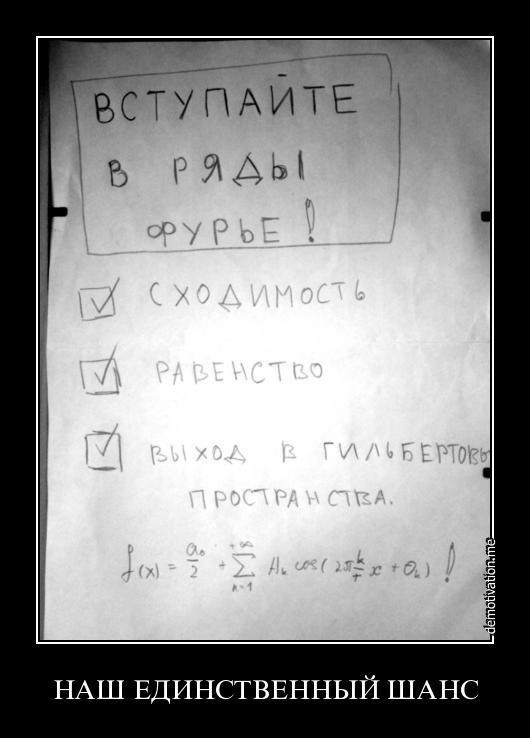 ВСТУПАЙТЕ
В РЯДЫ
ФУРЬЕ!
СХОДИМОСТЬ
РАВЕНСТВО
ВЫХОД В ГИЛЬБЕРТОВЫ
ПРОСТРАНСТВА.
f(x) = a₀/2 + +∞ Σ k=1 Aₖ cos(2π k/T x + Θₖ)!
demotivation.me
НАШ ЕДИНСТВЕННЫЙ ШАНС